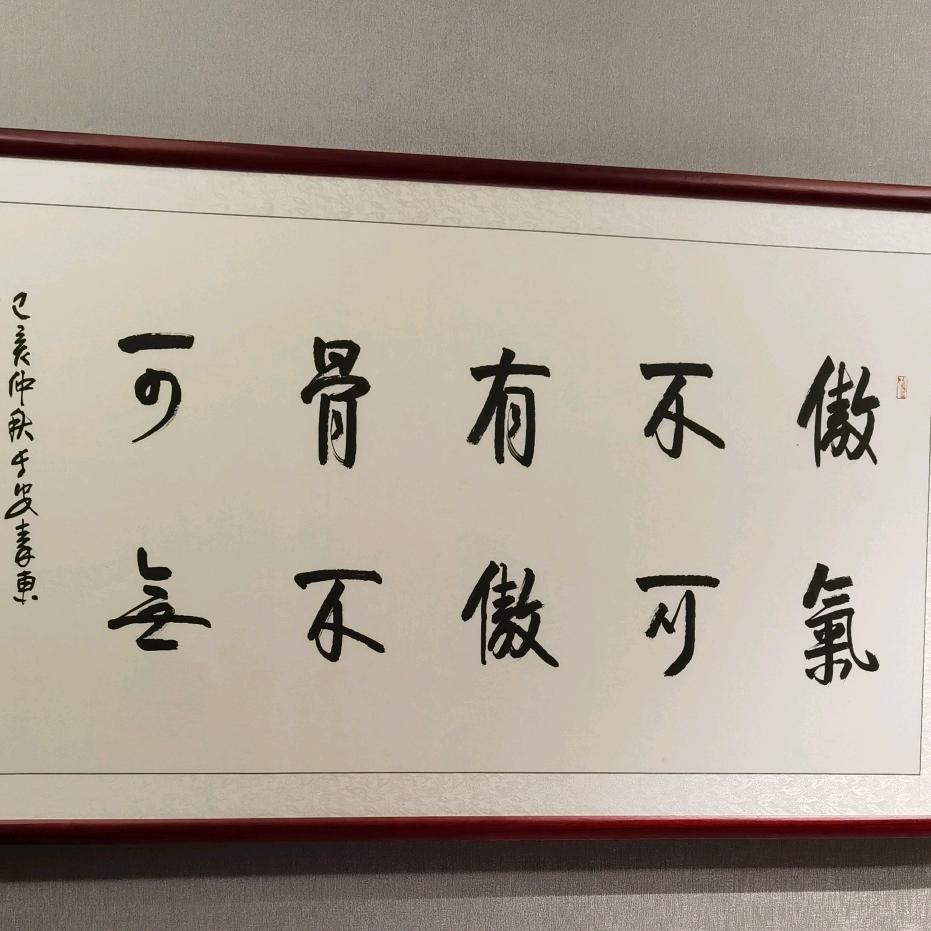 傲氣
不可
有傲
骨不
可無
己亥仲秋于安青東